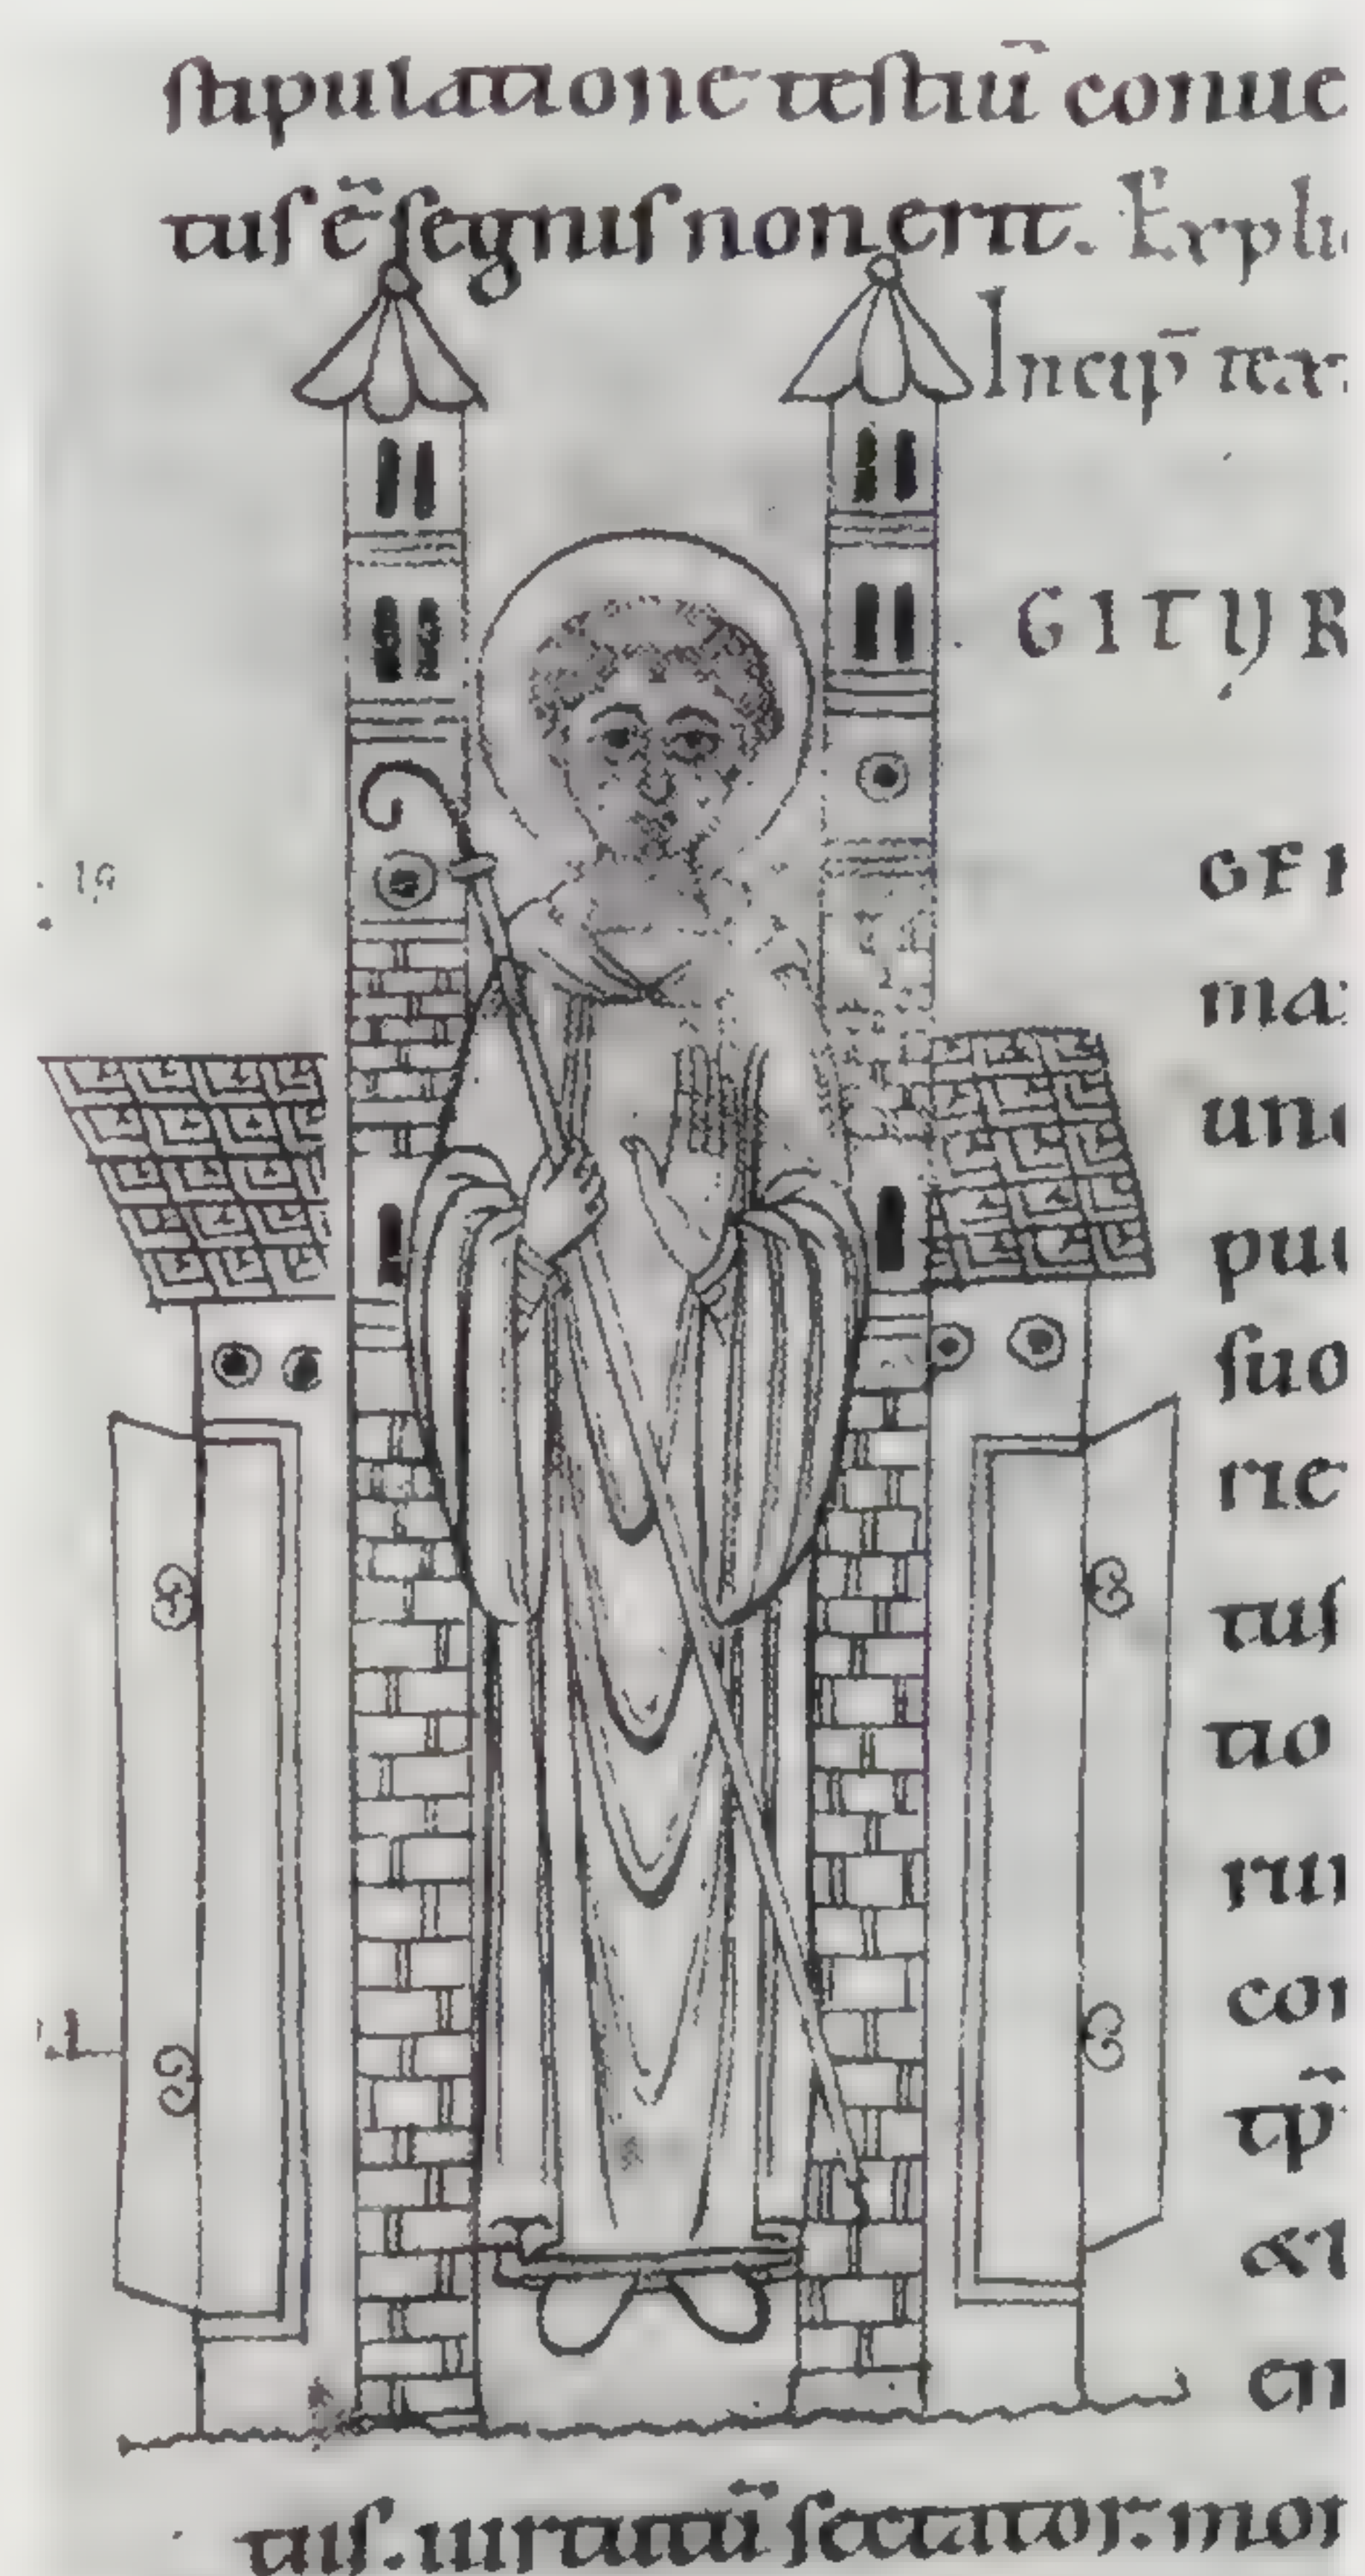 ſtipulatione teſtiū conue
tuſ ē ſegniſ non erit. Expli
Incip̄ tex
GITUR
GER
ma
un
pu
ſuo
rie
tuſ
tio
ru
con
tp̄
&
en
tuſ. uirtutū ſectator. mor